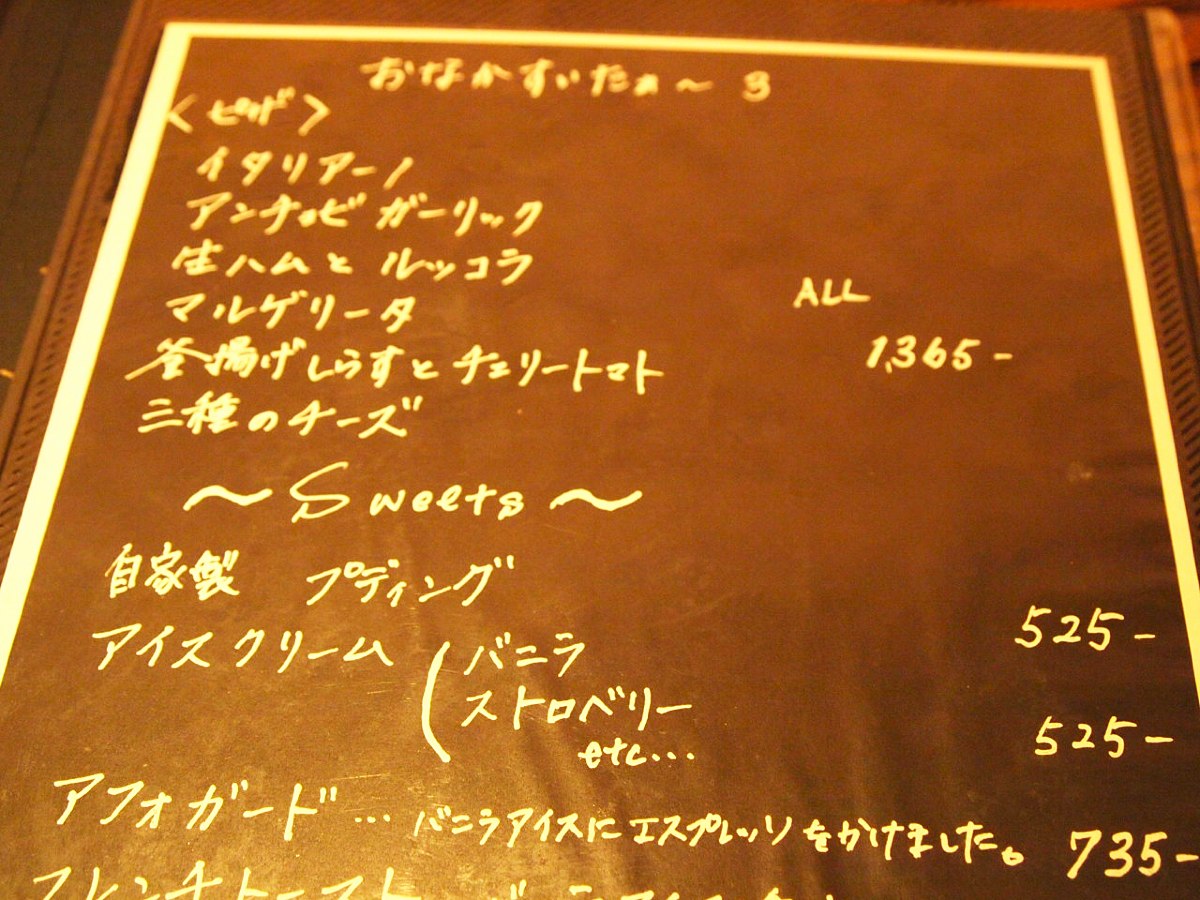 おなかすいたぁ〜 3
〈ピザ〉
イタリアーノ
アンチョビ ガーリック
生ハムと ルッコラ
マルゲリータ
釜揚げしらすと チェリートマト
三種のチーズ
ALL
1,365-
〜Sweets〜
自家製 プディング 525-
アイスクリーム (バニラ
ストロベリー
etc... 525-
アフォガード ... バニラアイスにエスプレッソをかけました。 735-
フレンチトースト